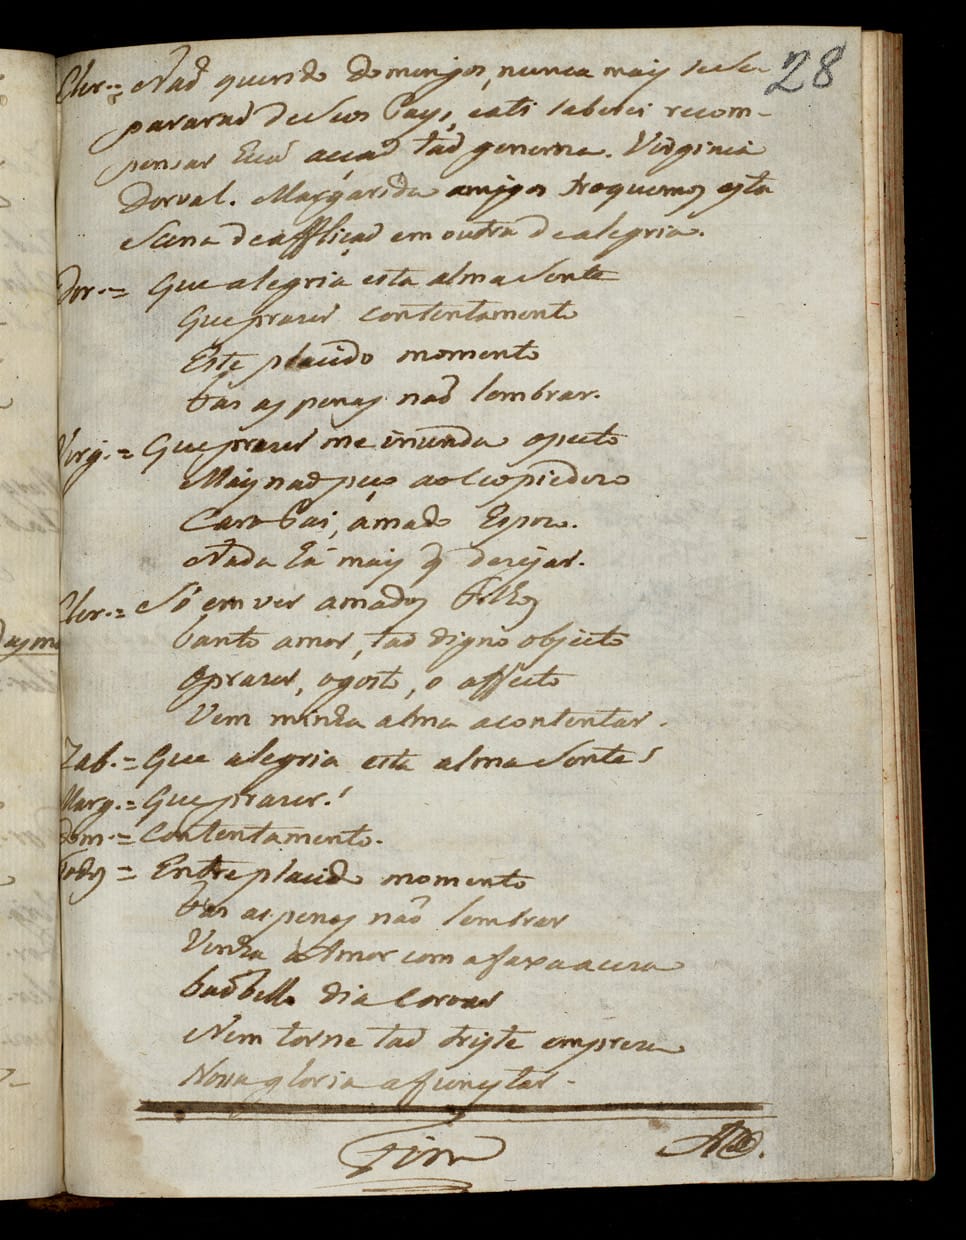 28
Cler.= Naõ querido Domingos, nunca mais se se
pararaõ de seos Pays, e ati saberei recom-
pensar hua acçaõ taõ generoza. Virginia
Dorval. Margarida amigos troquemos esta
Scena de afflicaõ em outra de alegria.
Dor.= Que alegria esta alma sente
Que praser contentamento
Este placido momento
Fas as penas naõ lembrar.
Virg.= Que praser me inunda o peito
Mais naõ peço ao Ceo piedozo
Caro Pai, amado Espozo.
Nada há mais q dezejar.
Cler.= Só em ver amados Filhos
Tanto amor, taõ digno objecto
O praser, o gosto, o affecto
Vem minha alma a contentar.
Zab.= Que alegria esta alma sente!
Marg.= Que praser!
Dom.= Contentamento.
Todos = Entre placido momento
Fas as penas naõ lembrar
Venha Amor com a faxa aceza
Taõ bello dia Coroar
Nem torne taõ triste empreza
Nova gloria a funestar.
Fim